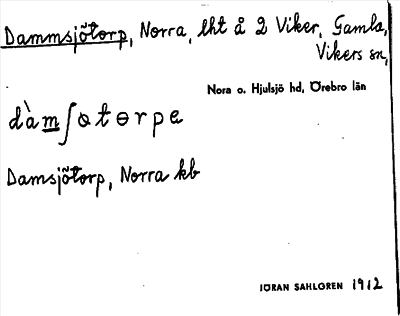 Dammsjötorp, Norra, lht å 2 Viker, Gamla,
Vikers sn,
Nora o. Hjulsjö hd, Örebro län
dàmʃɵtɵrpe
Damsjötorp, Norra kb
JÖRAN SAHLGREN 1912